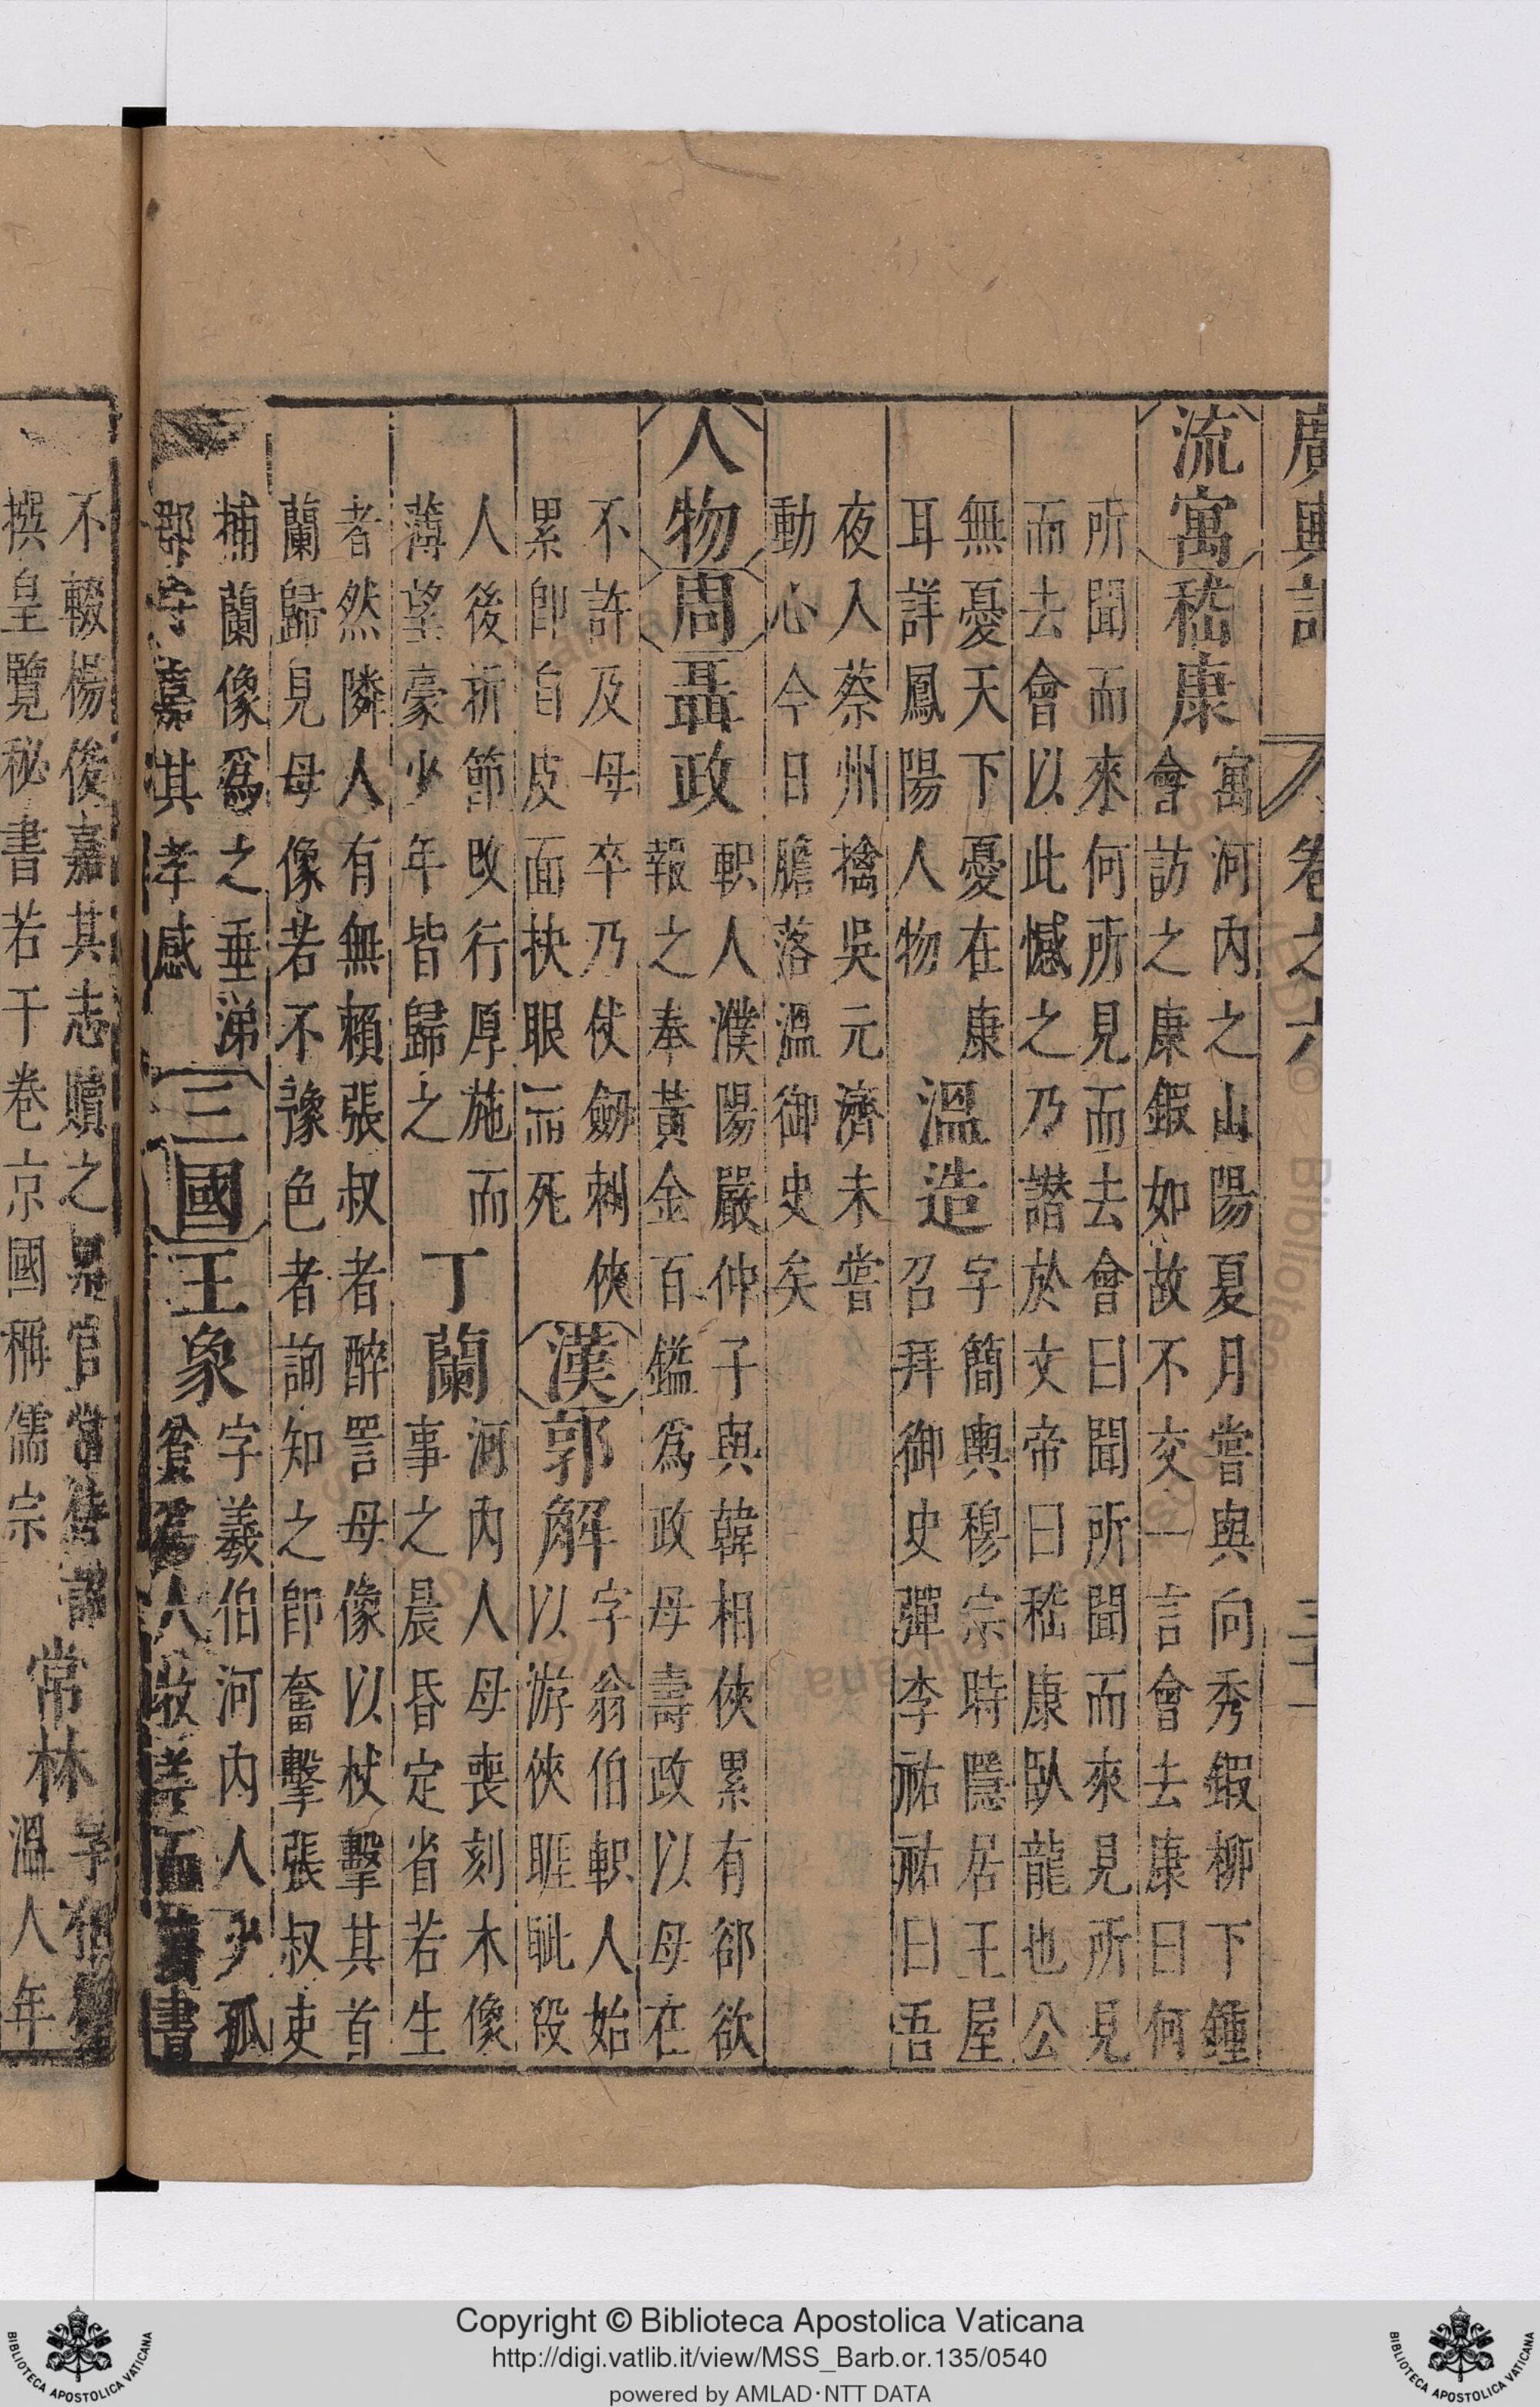 廣輿記 卷之六 三十一
流寓 嵇康 寓河內之山陽夏月嘗與向秀鍜柳下鍾
會訪之康鍜如故不交一言會去康曰何
所聞而來何所見而去會曰聞所聞而來見所見
而去會以此憾之乃譖於文帝曰嵇康臥龍也公
無憂天下憂在康 溫造 字簡輿穆宗時隱居王屋
耳詳鳳陽人物 召拜御史彈李祐祐曰吾
夜入蔡州擒吳元濟未嘗
動心今日膽落溫御史矣
人物 周 聶政 軹人濮陽嚴仲子與韓相俠累有郤欲
報之奉黃金百鎰爲政母壽政以母在
不許及母卒乃仗劒刺俠 漢 郭解 字翁伯軹人始
累卽自皮面抉眼而死 以游俠睚眦殺
人後折節改行厚施而 丁蘭 河內人母喪刻木像
薄望豪少年皆歸之 事之晨昏定省若生
者然隣人有無賴張叔者醉詈母像以杖擊其首
蘭歸見母像若不豫色者詢知之卽奮擊張叔吏
捕蘭像爲之垂涕 三國 王象 字羲伯河內人少孤
郡守嘉其孝感 貧爲人牧羊而讀書
不輟楊俊嘉其志贖之累官常侍 常林
撰皇覽秘書若干卷京國稱儒宗 溫人年
Copyright © Biblioteca Apostolica Vaticana
http://digi.vatlib.it/view/MSS_Barb.or.135/0540
powered by AMLAD·NTT DATA
BIBLIOTECA APOSTOLICA VATICANA
BIBLIOTECA APOSTOLICA VATICANA